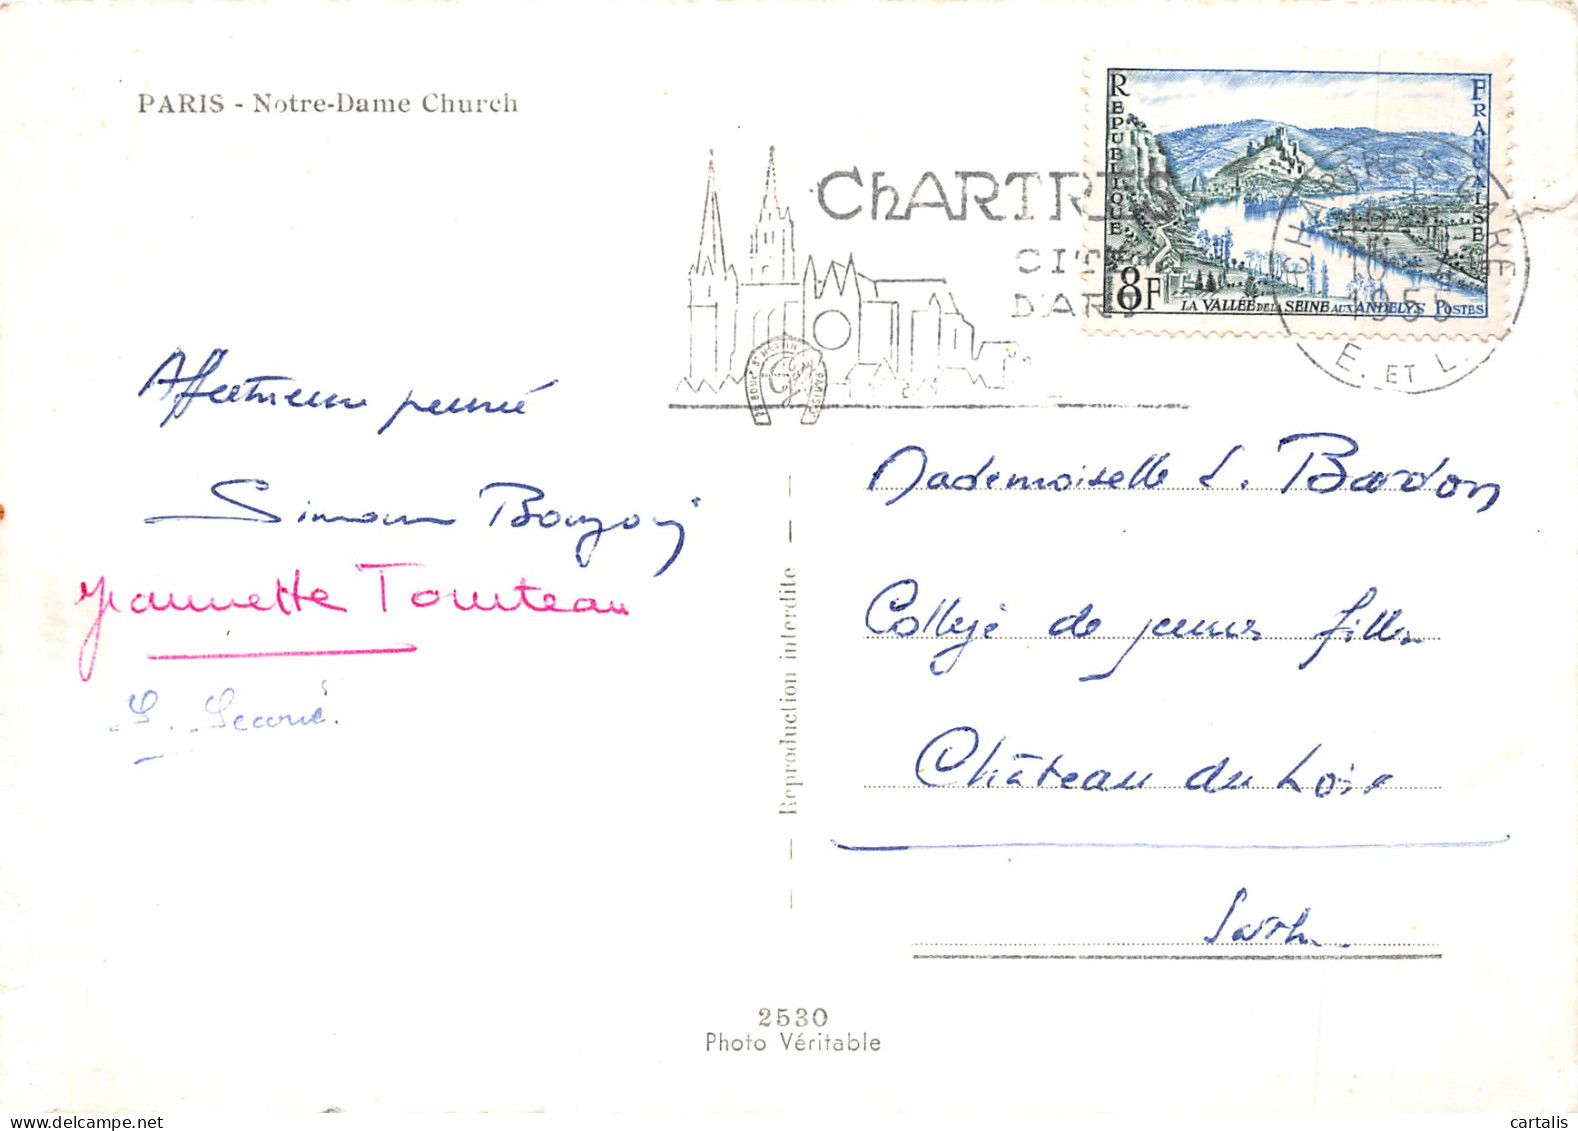 PARIS - Notre-Dame Church
ChARTRES
CITÉ
D'ART
RÉPUBLIQUE
FRANÇAISE
8F
LA VALLÉE DE LA SEINE AUX ANDELYS POSTES
CHARTRES-GARE
1955
E. ET L.
Affectueuse pensée
Simone
Jeannette Tourteau
Mademoiselle L. Bardon
Collège de jeunes filles
Château du Loir
Sarthe
Reproduction interdite
2530
Photo Véritable
cartalis